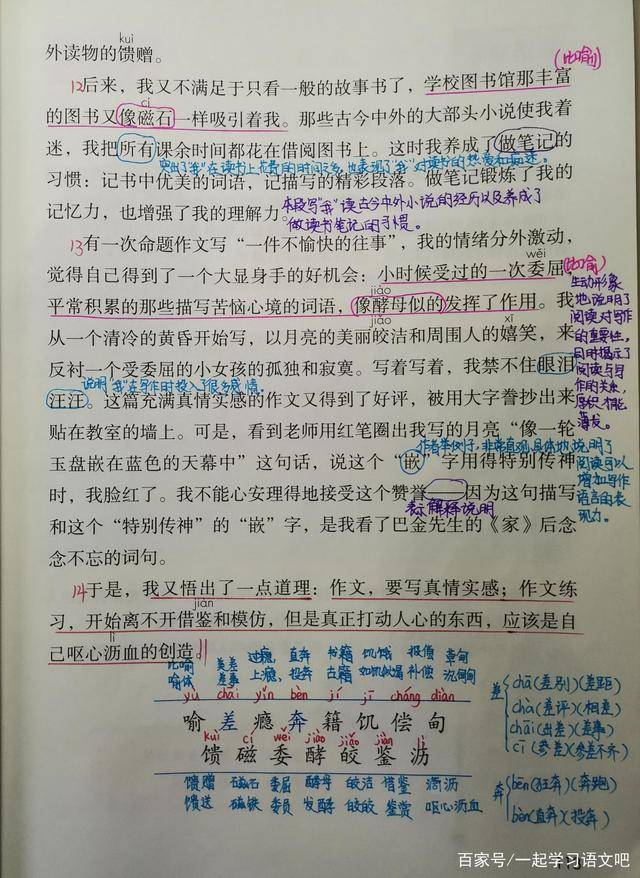 kuì
外读物的馈赠。
(比喻)
12后来，我又不满足于只看一般的故事书了，学校图书馆那丰富
cí
的图书又像磁石一样吸引着我。那些古今中外的大部头小说使我着
迷，我把所有课余时间都花在借阅图书上。这时我养成了做笔记的
突出了"我"在读书上花费的时间之多，也表现了"我"对读书的热爱和痴迷。
习惯：记书中优美的词语，记描写的精彩段落。做笔记锻炼了我的
记忆力，也增强了我的理解力。
本段写"我"读古今中外小说的经历以及养成了
做读书笔记的习惯。
13有一次命题作文写“一件不愉快的往事”，我的情绪分外激动，
wěi
觉得自己得到了一个大显身手的好机会：小时候受过的一次委屈，
(比喻)
jiào
平常积累的那些描写苦恼心境的词语，像酵母似的发挥了作用。我
jiǎo
xī
从一个清冷的黄昏开始写，以月亮的美丽皎洁和周围人的嬉笑，来
反衬一个受委屈的小女孩的孤独和寂寞。写着写着，我禁不住眼泪
说明"我"在写作时投入了很多感情。
汪汪。这篇充满真情实感的作文又得到了好评，被用大字誊抄出来
贴在教室的墙上。可是，看到老师用红笔圈出我写的月亮“像一轮
玉盘嵌在蓝色的天幕中”这句话，说这个“嵌”字用得特别传神
时，我脸红了。我不能心安理得地接受这个赞誉——因为这句描写
表示解释说明
和这个“特别传神”的“嵌”字，是我看了巴金先生的《家》后念
念不忘的词句。
生动形象
地说明了
阅读对写作
的重要性。
同时揭示了
阅读与写
作的关系，
厚积才能
薄发。
作者举例子，非常直观、具体地说明了
阅读可以
增加写作
语言的表
现力。
14于是，我又悟出了一点道理：作文，要写真情实感；作文练
jiàn
习，开始离不开借鉴和模仿，但是真正打动人心的东西，应该是自
lì
己呕心沥血的创造。
比喻 美差 过瘾 直奔 书籍 饥饿 报偿 草甸
喻体 差事 上瘾 投奔 古籍 如饥似渴 补偿 沉甸甸
yù chāi yǐn bèn jí jī cháng diàn
喻 差 瘾 奔 籍 饥 偿 甸
kuì cí wěi jiào jiǎo jiàn lì
馈 磁 委 酵 皎 鉴 沥
馈赠 磁石 委屈 酵母 皎洁 借鉴 滴沥
馈送 磁铁 委员 发酵 皎皎 鉴赏 呕心沥血
差
chā(差别)(差距)
chà(差评)(相差)
chāi(出差)(差事)
cī(参差)(参差不齐)
奔
bēn(狂奔)(奔跑)
bèn(直奔)(投奔)
百家号/一起学习语文吧